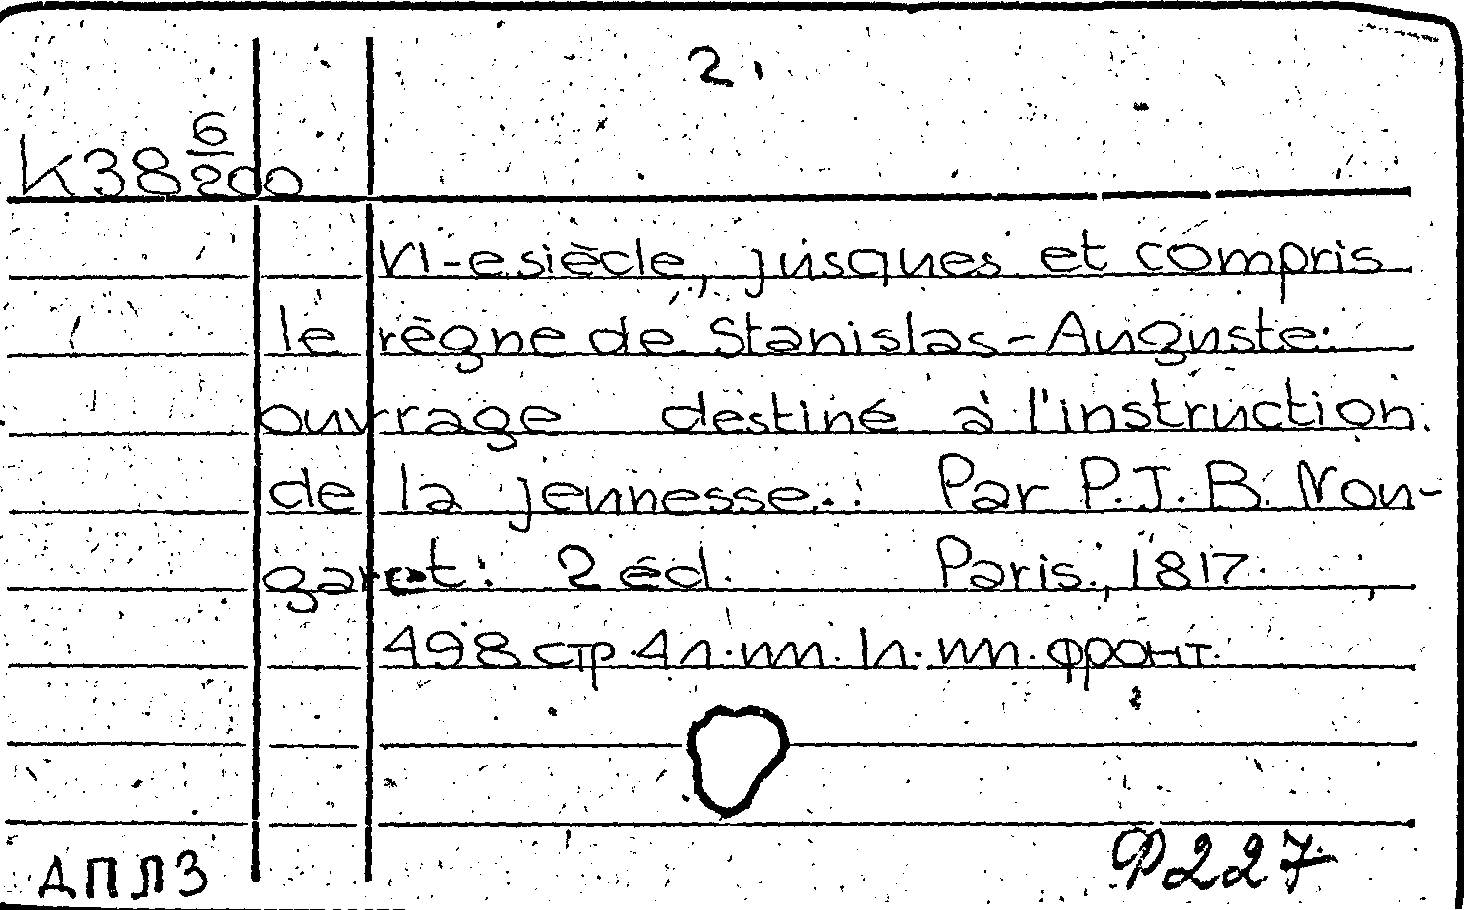 2.
К38 6/200
VI-e siècle, jusques et compris
le règne de Stanislas-Auguste:
ouvrage destiné à l'instruction
de la jeunesse.. Par P.J.B. Nou-
garet: 2 éd. Paris., 1817.
498 стр. 4 л. илл. 1 л. илл. фронт.
АПЛЗ Ф227